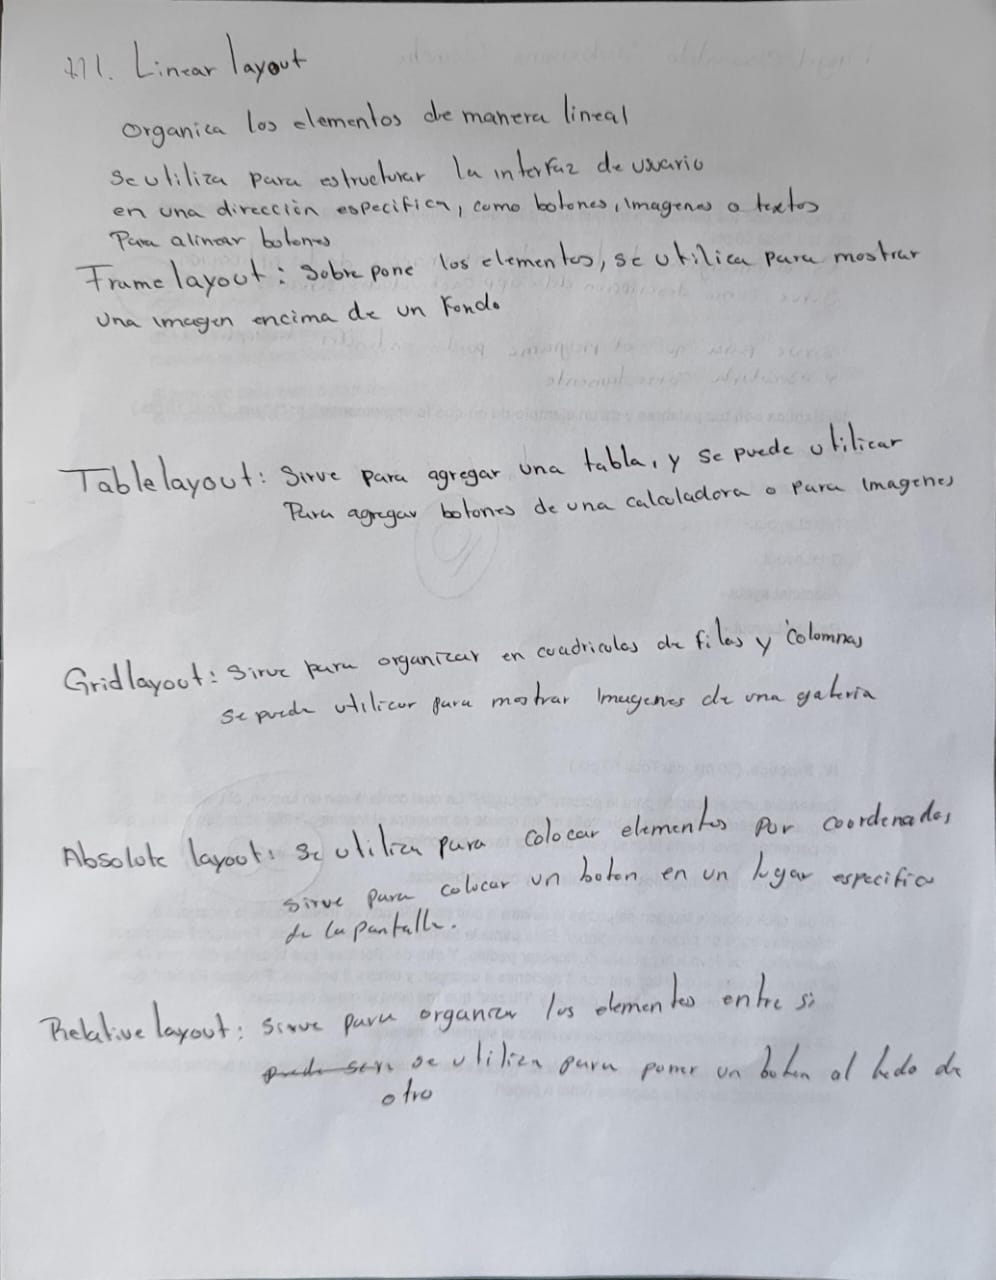 III. Linear layout
Organica los elementos de manera lineal
Se utiliza para estructurar la interfaz de usuario
en una dirección especifica, como botones, Imagenes o textos
Para alinear botones
Frame layout: Sobre pone los elementos, se utilica para mostrar
una imagen encima de un Fondo
Table layout: Sirve para agregar una tabla, y se puede utilicar
Para agregar botones de una calculadora o para Imagenes
Grid layout: Sirve para organizar en cuadriculas de filas y Colomnas
se puede utilicar para mostrar Imagenes de una galeria
Absolute layout: se utiliza para colocar elementos por coordenadas,
sirve para colocar un boton en un lugar especifico
de la pantalla.
Relative layout: sirve para organizar los elementos entre si
se utiliza para poner un boton al lado de
otro